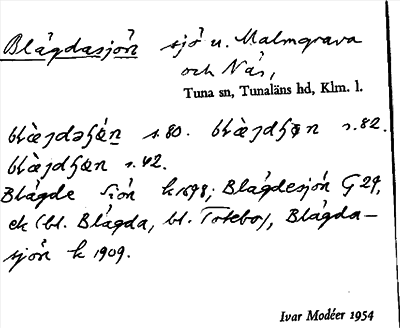 Blågdasjön sjö n. Malmgrava
och Näs,
Tuna sn, Tunaläns hd, Klm. l.
s.80. s.82.
s.42.
Blågde Siön k 1698; Blågdesjön G 29,
ek (bl. Blågda, bl. Toteboz), Blågda-
sjön k 1909.
Ivar Modéer 1954